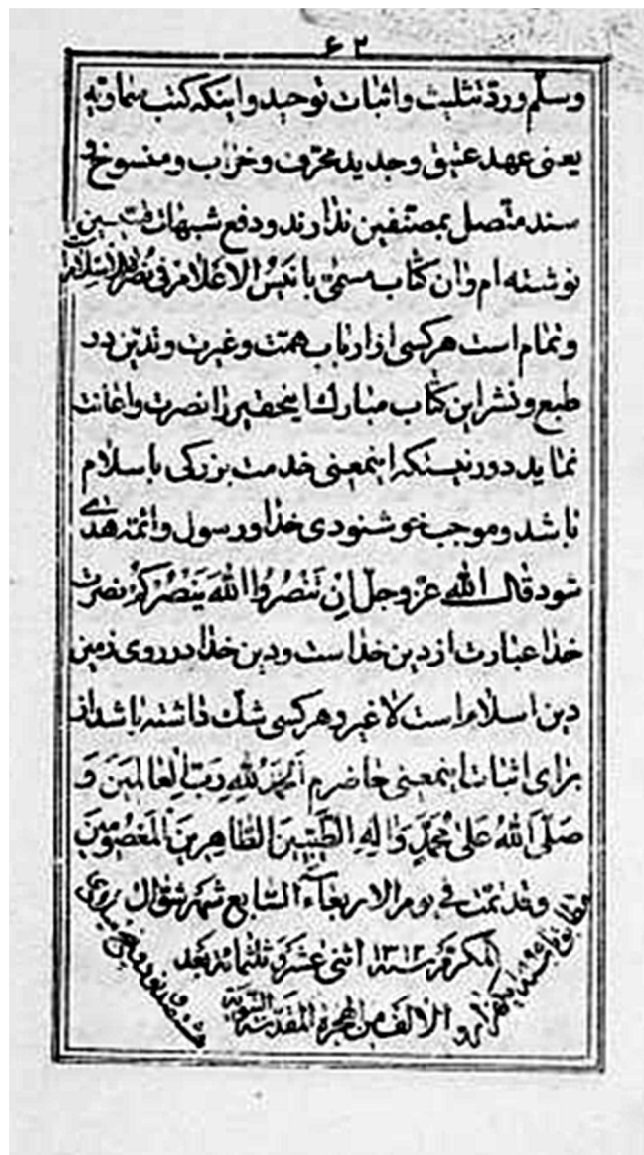 ۶۲
وسلّم وردّ تثلیث و اثبات توحید و اینکه کتب سماویّه
یعنی عهد عتیق و جدید محرّف و خراب و منسوخ و
سند متّصل بمصنّفین ندارند و دفع شبهات قسّیسین
نوشته ام وان کتاب مسمّی بانیس الاعلام فی نصرة الاسلام
و تمام است هر کسی از ارباب همّت و غیرت و تدیّن در
طبع و نشر این کتاب مبارک اینحقیر را نصرت و اعانت
نماید دور نیست که اینمعنی خدمت بزرکی باسلام
باشد و موجب خوشنودی خدا و رسول و ائمّه هدی
شود قال الله عزّ وجلّ اِنْ تَنْصُرُوا اللهَ یَنْصُرْکُمْ نصرت
خدا عبارت از دین خداست و دین خدا در روی زمین
دین اسلام است لاغیر و هر کسی شک داشته باشد از
برای اثبات اینمعنی حاضرم اَلْحَمْدُ لِلّهِ رَبِّ الْعالَمینَ وَ
صَلَّی اللهُ عَلی مُحَمَّدٍ وَالِهِ الطَّیِّبینَ الطّاهِرینَ الْمَعْصُومینَ
و قد تمّت فی یوم الاربعاء السّابع شهر شوّال
المکرّم سنة ۱۳۱۲ اثنی عشر و ثلثمائة بعد
و الالف من الهجرة المقدّسة النّبویّة
مطابق سنه ۱۸۹۵ یکهزار و
هشتصد و نود و پنج میلادی